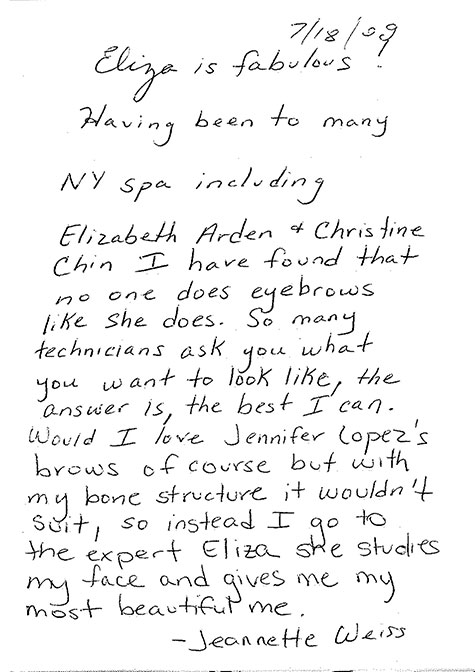 7/18/09
Eliza is fabulous!
Having been to many
NY spa including
Elizabeth Arden + Christine
Chin I have found that
no one does eyebrows
like she does. So many
technicians ask you what
you want to look like, the
answer is, the best I can.
Would I love Jennifer Lopez's
brows of course but with
my bone structure it wouldn't
suit, so instead I go to
the expert Eliza she studies
my face and gives me my
most beautiful me.
- Jeannette Weiss